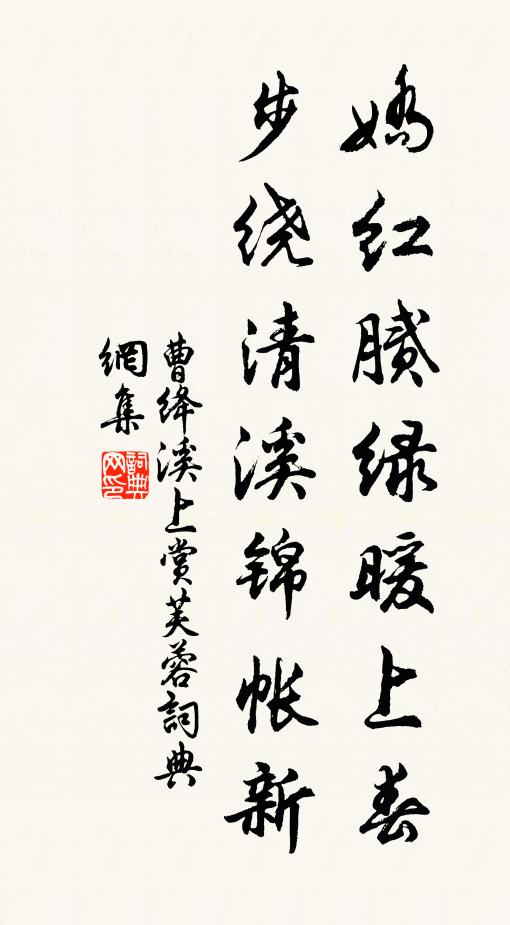 娇红腻绿暖上春
步绕清溪锦帐新
曹绛溪上赏芙蓉詞典
網集
詞典
网印